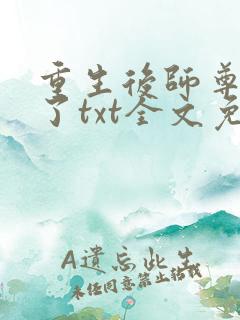 重生後師尊
了txt全文免
A遺忘此生
未经同意禁止转载